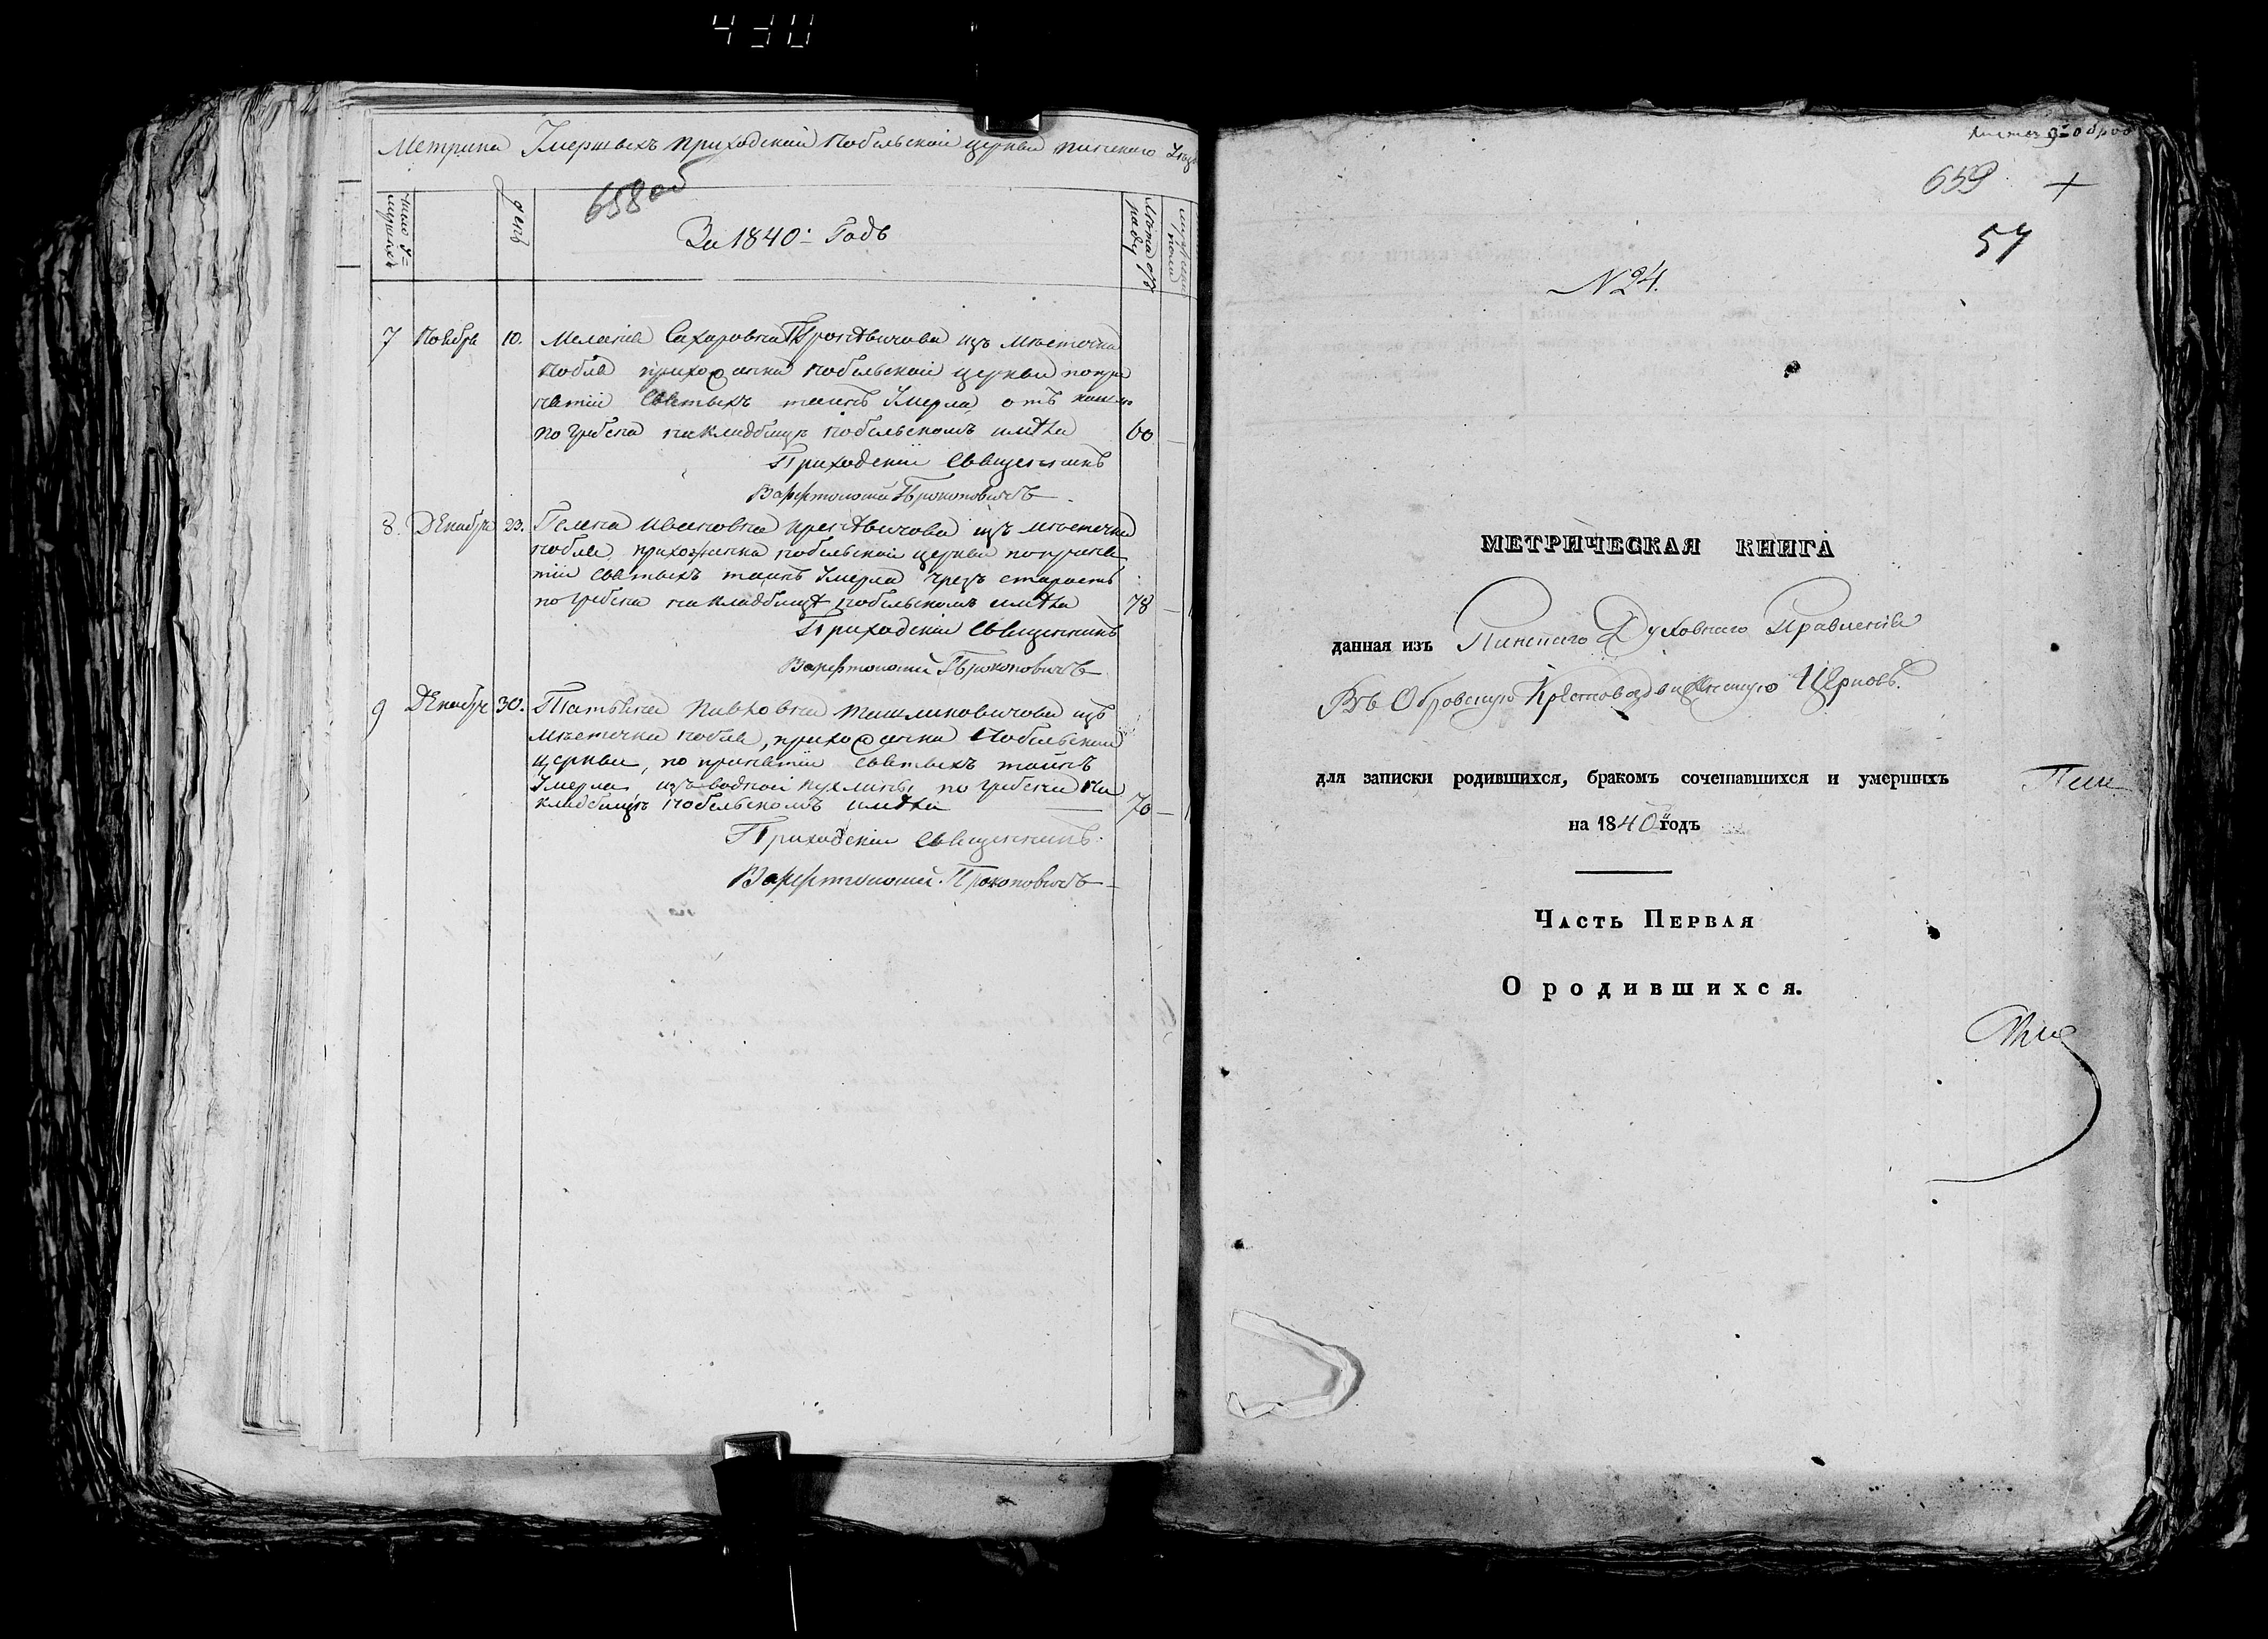 430
Метрика Умершыхъ приходской Нобельской церкви пинского Уезда
число У=
мершихъ
день
658 об
За 1840й Годъ
лѣта отъ
роду
7 Ноября 10. Мелания Сахаровна из мѣстечка
Нобля прихожанка Нобельской церкви по при
нятіи Святыхъ таинъ Умерла отъ кашлю
погребена на кладбищѣ Нобельскомъ имѣла 60
Приходскій Священникъ
Варфтоломей Прокоповичъ
8. Декабря 23. Гелена Ивановна из мѣстечка
Нобля прихожанка Нобельской церкви по приня
тіи Святыхъ таинъ Умерла чрезъ старость
погребена на кладбищѣ Нобельскомъ имѣла 78
Приходскій Священникъ
Варфтоломей Прокоповичъ
9 Декабря 30. Татьяна Павловна изъ
мѣстечка Нобля, прихожанка Нобельской
церкви, по принятіи Святыхъ таинъ
Умерла изъ водной пухлины погребена на
кладбищѣ Нобельскомъ имѣла 70
Приходскій Священникъ
Варфтоломей Прокоповичъ
659 +
57
N 24.
МЕТРИЧЕСКАЯ КНИГА
данная изъ Пинского Духовнаго Правленія
Въ Обровскую Крестовоздвиженскую Церковь.
для записки родившихся, бракомъ сочетавшихся и умершихъ
на 1840й годъ
Часть Первая
О родившихся.